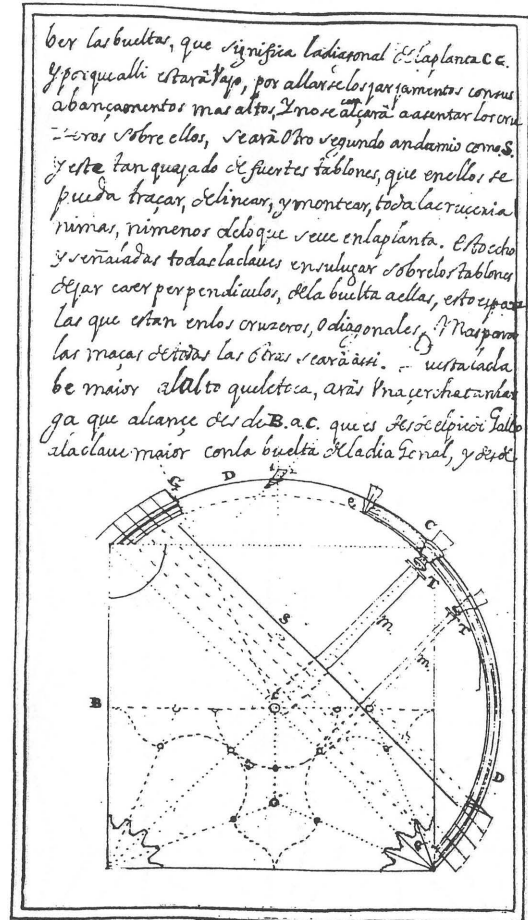 ber las bueltas, que significa la diagonal de la planta CC.
Y por que alli estará Vajo, por allarse los jarjamentos con sus
abançamentos mas altos, Y no se alçará a asentar los cru
zeros sobre ellos, se ará Otro segundo andamio como S.
y este tan quajado de fuertes tablones, que en ellos se
pueda traçar, delinear, y montear, toda la cruceria
ni mas, ni menos de lo que se ve en la planta. Esto echo
y señaladas todas la claves en su lugar sobre los tablones
dejar caer perpendiculos, de la buelta a ellas, esto es para
las que estan en los cruzeros, o diagonales, Mas para
las maças de todas las otras se ará assi. uesta la cla
be maior al alto que le toca, arás Vna çercha tan lar
ga que alcançe desde B. a C. que es desde el pie de Gallo
a la clave maior con la buelta de la diagonal, y desde
G D 1 2
e C
T
S m T
m
B C
D